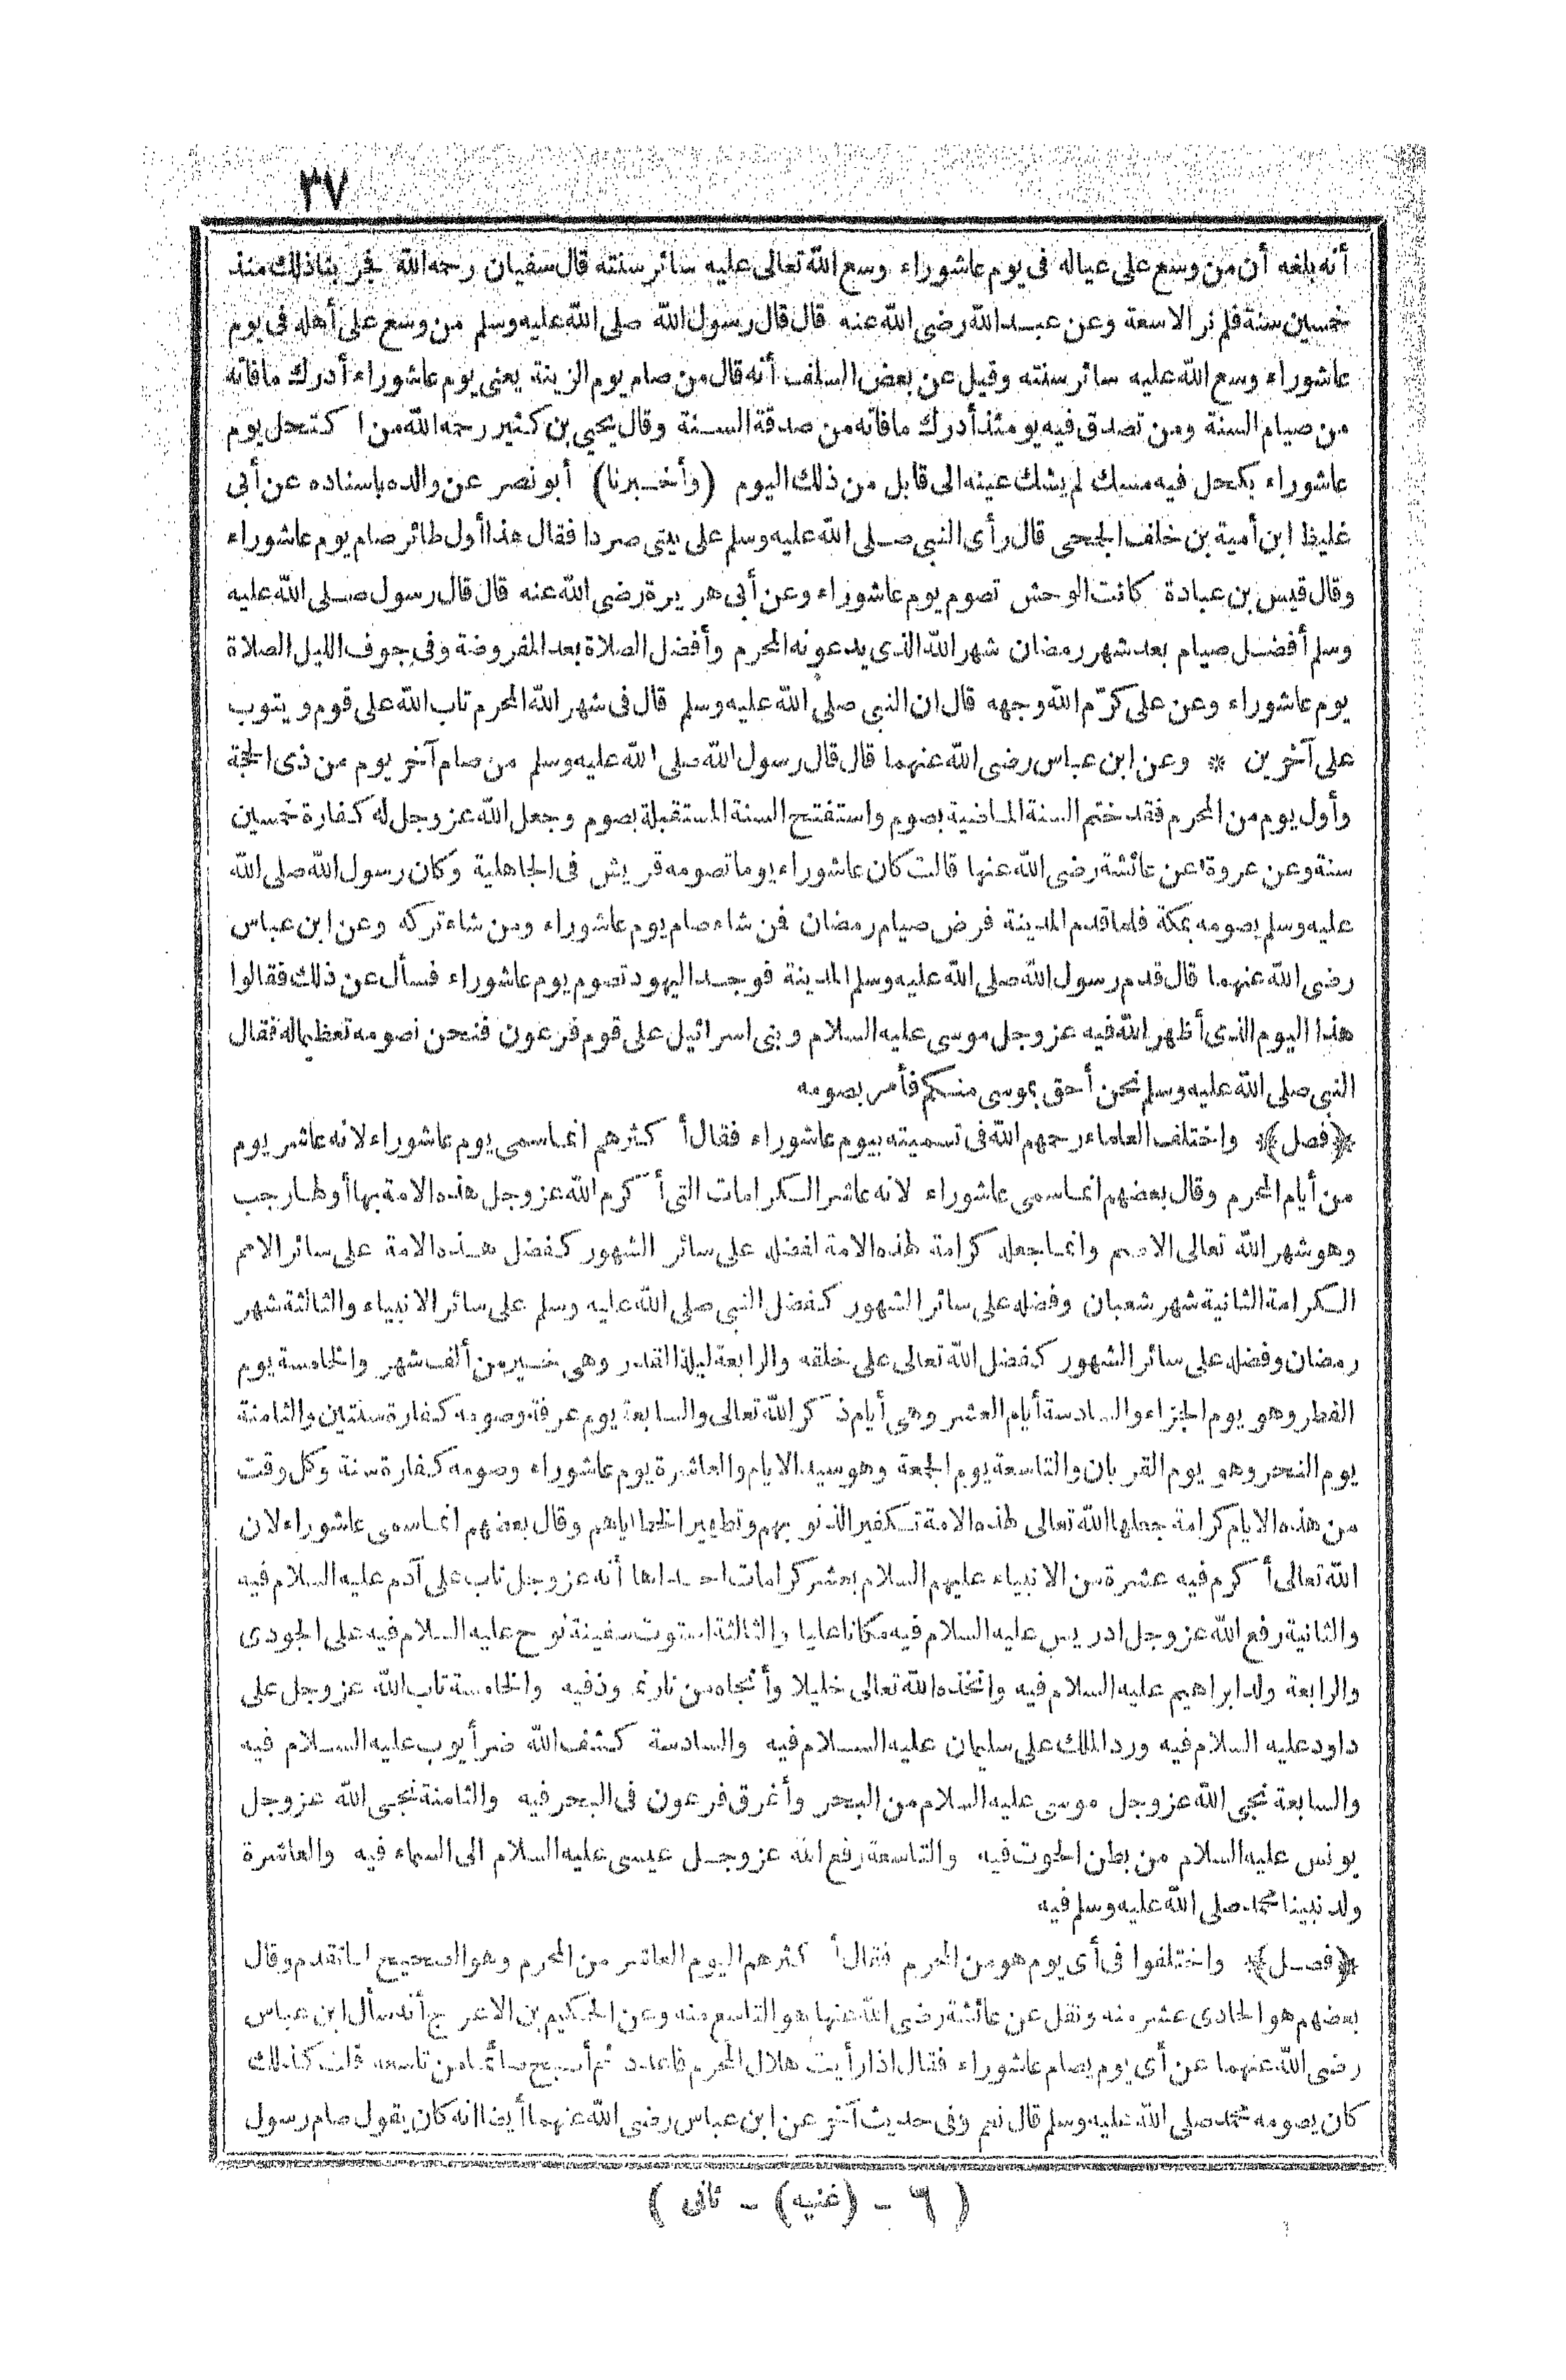 ٣٧
أنه بلغه أن من وسع على عياله فى يوم عاشوراء وسع الله تعالى عليه سائر سنته قال سفيان رحمه الله فجربنا ذلك منذ
خمسين سنة فلم نر الا سعة وعن عبد الله رضى الله عنه قال قال رسول الله صلى الله عليه وسلم من وسع على أهله فى يوم
عاشوراء وسع الله عليه سائر سنته وقيل عن بعض السلف أنه قال من صام يوم الزينة يعنى يوم عاشوراء أدرك ما فاته
من صيام السنة ومن تصدق فيه يومئذ أدرك ما فاته من صدقة السنة وقال يحيى بن كثير رحمه الله من اكتحل يوم
عاشوراء بكحل فيه مسك لم يشك عينه الى قابل من ذلك اليوم (وأخبرنا) أبو نصر عن والده باسناده عن أبى
غليظ ابن أمية بن خلف الجمحى قال رأى النبى صلى الله عليه وسلم على بيتى صردا فقال هذا أول طائر صام يوم عاشوراء
وقال قيس بن عبادة كانت الوحش تصوم يوم عاشوراء وعن أبى هريرة رضى الله عنه قال قال رسول صلى الله عليه
وسلم أفضل صيام بعد شهر رمضان شهر الله الذى يدعونه المحرم وأفضل الصلاة بعد المفروضة وفى جوف الليل الصلاة
يوم عاشوراء وعن على كرّم الله وجهه قال ان النبى صلى الله عليه وسلم قال فى شهر الله المحرم تاب الله على قوم ويتوب
على آخرين * وعن ابن عباس رضى الله عنهما قال قال رسول الله صلى الله عليه وسلم من صام آخر يوم من ذى الحجة
وأول يوم من المحرم فقد ختم السنة الماضية بصوم واستفتح السنة المستقبلة بصوم وجعل الله عز وجل له كفارة خمسين
سنة وعن عروة عن عائشة رضى الله عنها قالت كان عاشوراء يوما تصومه قريش فى الجاهلية وكان رسول الله صلى الله
عليه وسلم يصومه بمكة فلما قدم المدينة فرض صيام رمضان فمن شاء صام يوم عاشوراء ومن شاء تركه وعن ابن عباس
رضى الله عنهما قال قدم رسول الله صلى الله عليه وسلم المدينة فوجد اليهود تصوم يوم عاشوراء فسأل عن ذلك فقالوا
هذا اليوم الذى أظهر الله فيه عز وجل موسى عليه السلام وبنى اسرائيل على قوم فرعون فنحن نصومه تعظيما له فقال
النبى صلى الله عليه وسلم نحن أحق بموسى منكم فأمر بصومه
*(فصل)* واختلف العلماء رحمهم الله فى تسميته بيوم عاشوراء فقال أكثرهم انما سمى يوم عاشوراء لانه عاشر يوم
من أيام المحرم وقال بعضهم انما سمى عاشوراء لانه عاشر الكرامات التى أكرم الله عز وجل هذه الامة بها أولها رجب
وهو شهر الله تعالى الاصم وانما جعله كرامة لهذه الامة لفضله على سائر الشهور كفضل هذه الامة على سائر الامم
الكرامة الثانية شهر شعبان وفضله على سائر الشهور كفضل النبى صلى الله عليه وسلم على سائر الانبياء والثالثة شهر
رمضان وفضله على سائر الشهور كفضل الله تعالى على خلقه والرابعة ليلة القدر وهى خير من ألف شهر والخامسة يوم
الفطر وهو يوم الجزاء والسادسة أيام العشر وهى أيام ذكر الله تعالى والسابعة يوم عرفة وصومه كفارة سنتين والثامنة
يوم النحر وهو يوم القربان والتاسعة يوم الجمعة وهو سيد الايام والعاشرة يوم عاشوراء وصومه كفارة سنة وكل وقت
من هذه الايام كرامة جعلها الله تعالى لهذه الامة تكفير الذنوبهم وتطهير الخطاياهم وقال بعضهم انما سمى عاشوراء لان
الله تعالى أكرم فيه عشرة من الانبياء عليهم السلام بعشر كرامات احداها أنه عز وجل تاب على آدم عليه السلام فيه
والثانية رفع الله عز وجل ادريس عليه السلام فيه مكانا عليا والثالثة استوت سفينة نوح عليه السلام فيه على الجودى
والرابعة ولد ابراهيم عليه السلام فيه واتخذه الله تعالى خليلا وأنجاه من نار نمروذ فيه والخامسة تاب الله عز وجل على
داود عليه السلام فيه ورد الملك على سليمان عليه السلام فيه والسادسة كشف الله ضر أيوب عليه السلام فيه
والسابعة نجى الله عز وجل موسى عليه السلام من البحر وأغرق فرعون فى البحر فيه والثامنة نجى الله عز وجل
يونس عليه السلام من بطن الحوت فيه والتاسعة رفع الله عز وجل عيسى عليه السلام الى السماء فيه والعاشرة
ولد نبينا محمد صلى الله عليه وسلم فيه
*(فصل)* واختلفوا فى أى يوم هو من المحرم فقال أكثرهم اليوم العاشر من المحرم وهو الصحيح لما تقدم وقال
بعضهم هو الحادى عشر منه ونقل عن عائشة رضى الله عنها هو التاسع منه وعن الحكيم بن الاعرج أنه سأل ابن عباس
رضى الله عنهما عن أى يوم يصام عاشوراء فقال اذا رأيت هلال المحرم فاعدد ثم أصبح صائما من تاسعه قلت كذلك
كان يصومه محمد صلى الله عليه وسلم قال نعم وفى حديث آخر عن ابن عباس رضى الله عنهما أيضا انه كان يقول صام رسول
( ٦ - (غنيه) - ثانى )